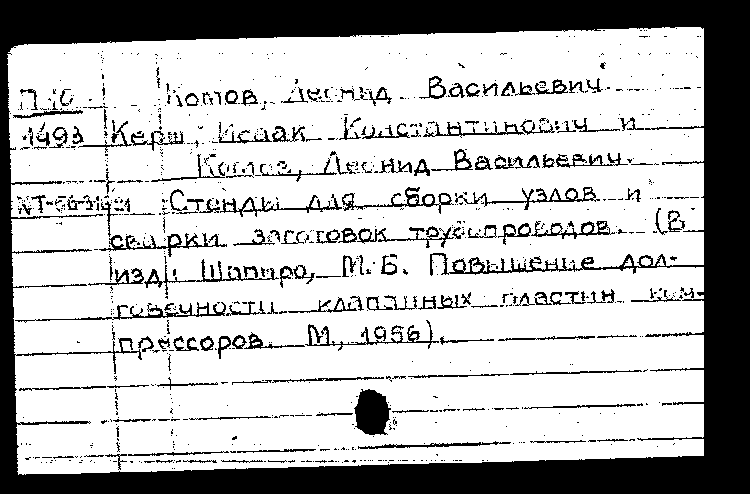 П 10 Котов, Леонид Васильевич
1493 Керш, Исаак Константинович и
Котов, Леонид Васильевич.
Стенды для сборки узлов и
сварки заготовок трубопроводов. (В
изд: Шапиро, М.Б. Повышение дол-
говечности клапанных пластин ком-
прессоров. М., 1956).